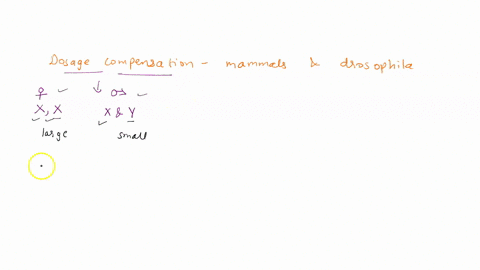 Dosage compensation - mammals & drosophila
♀ ♂
X, X X & Y
large small